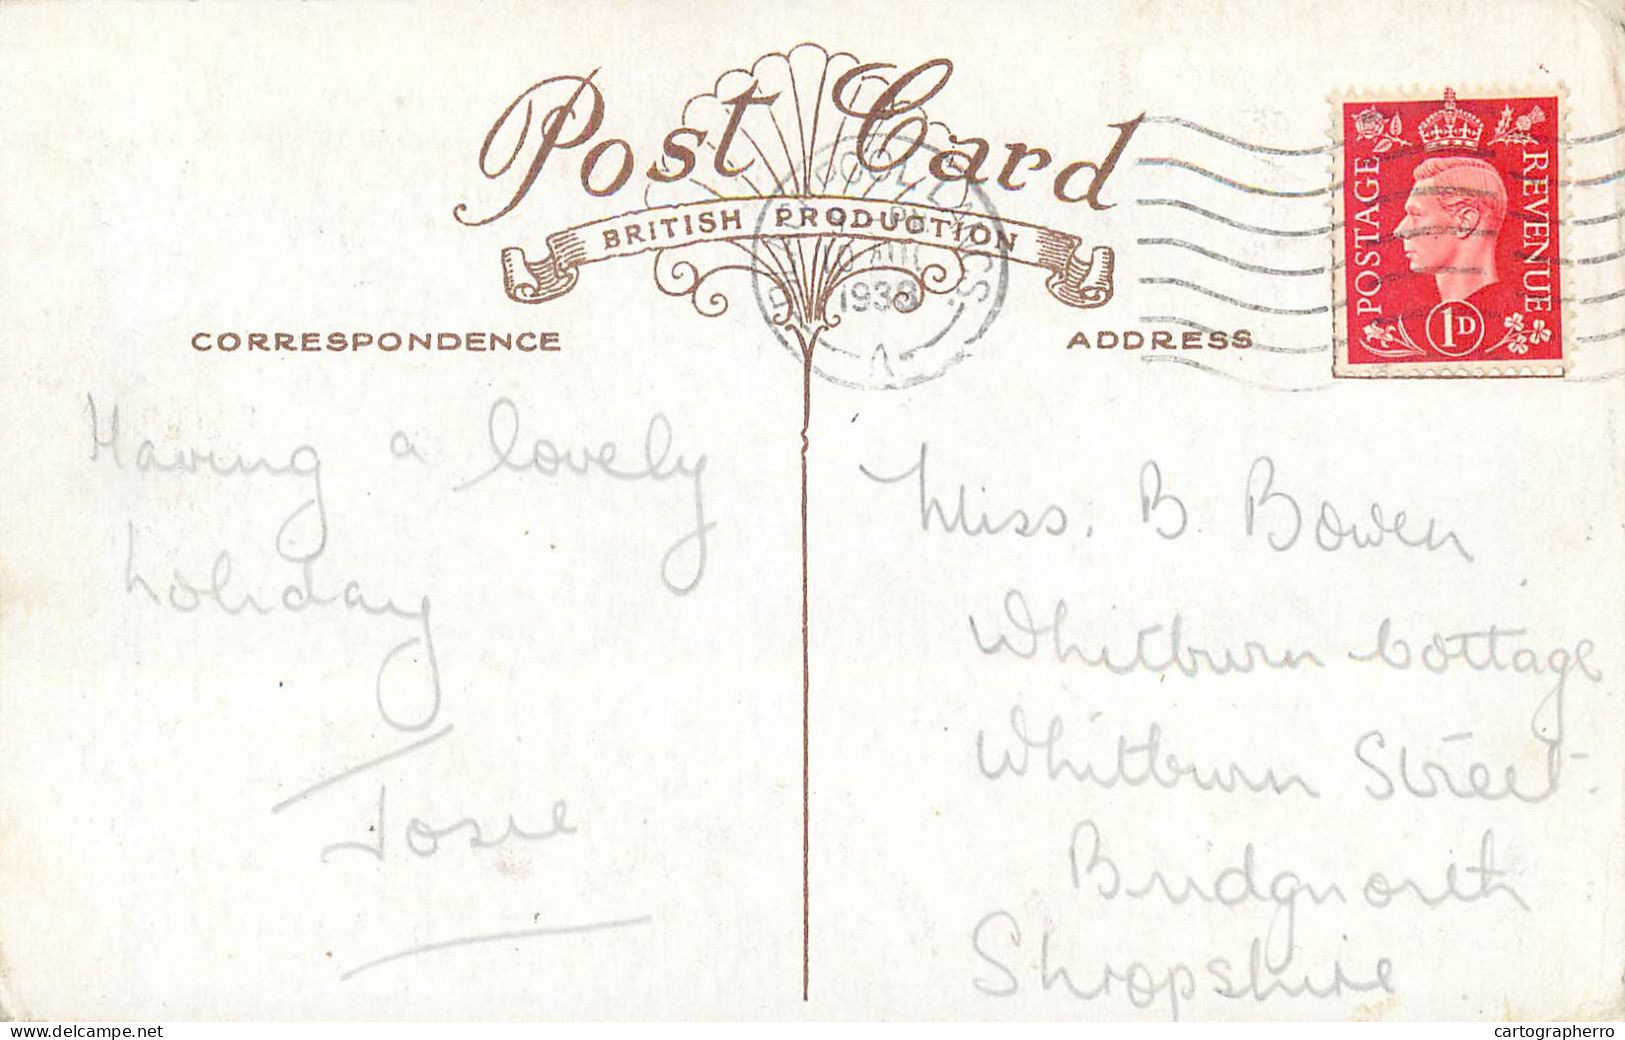 Post Card
BRITISH PRODUCTION
CORRESPONDENCE
ADDRESS
BLACKPOOL LANCS.
AUG
1938
A
POSTAGE
REVENUE
1D
Having a lovely
holiday
Josie
Miss. B. Bowen
Whitburn Cottage
Whitburn Street.
Bridgnorth
Shropshire
www.delcampe.net
cartographerro